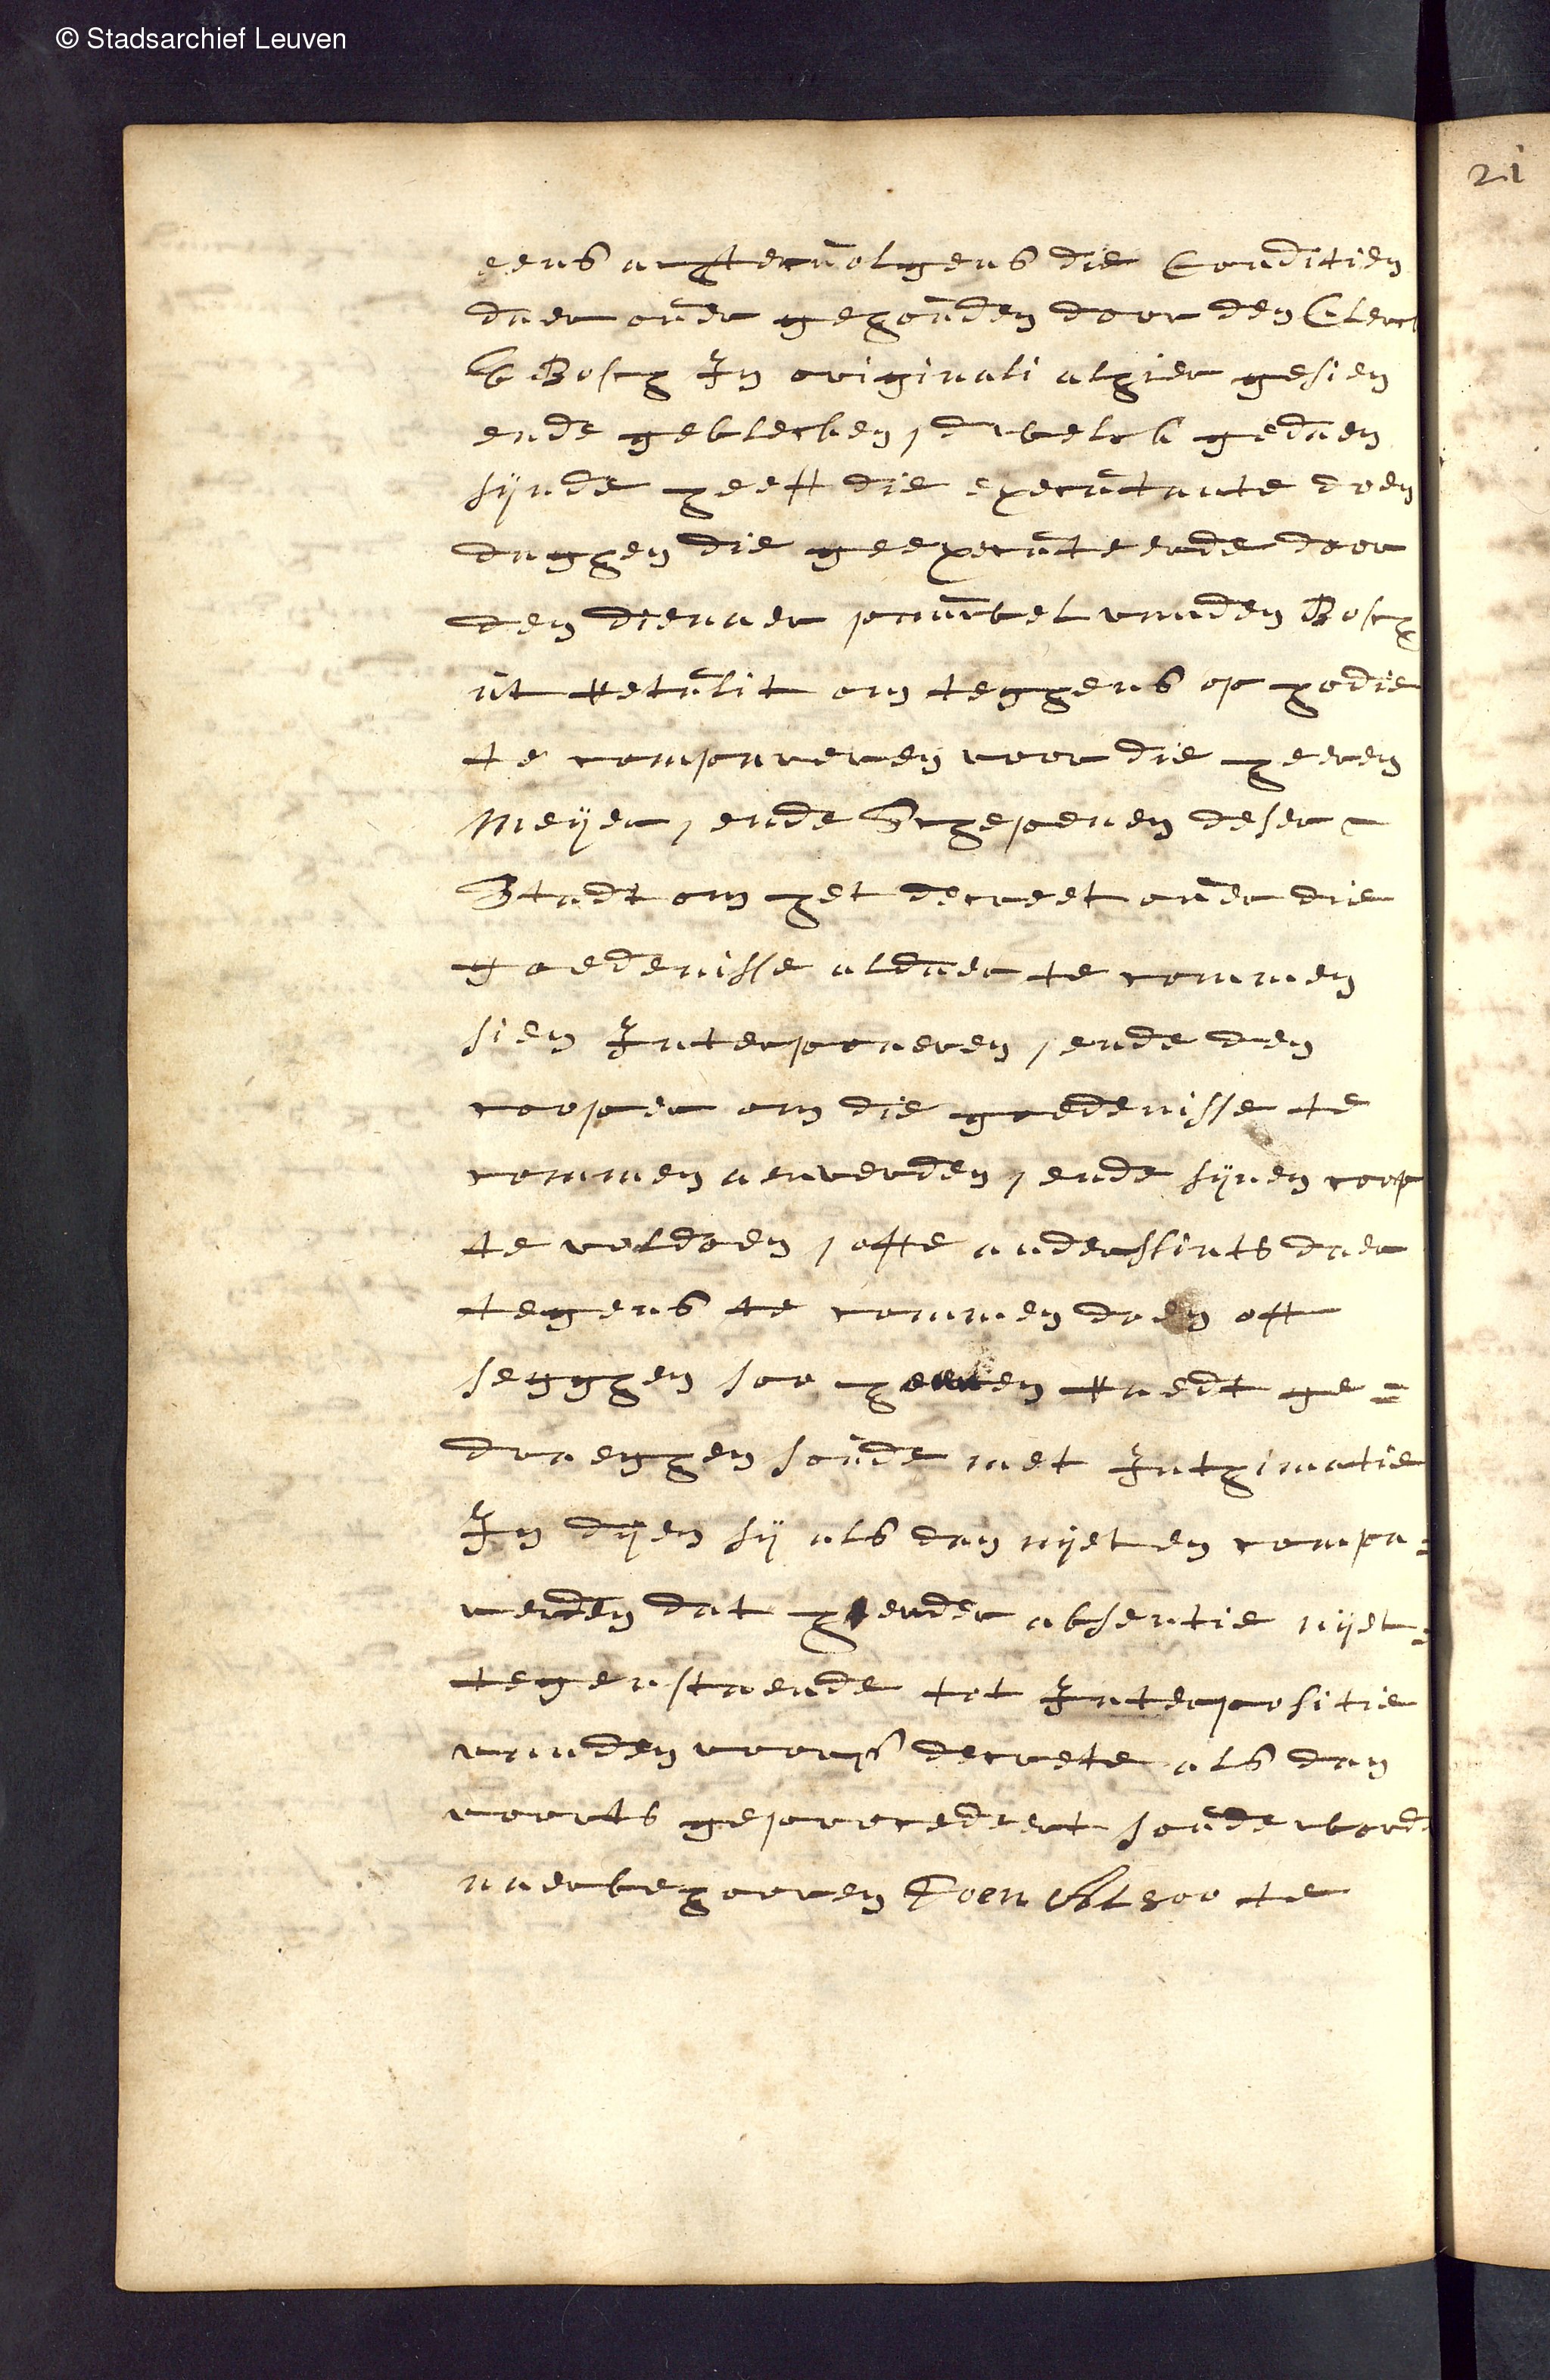 © Stadsarchief Leuven
21
eens achtervolgens die Conditien
daer over gehouden door den Clerck
Bosch In originali alhier gesien
ende gebleken, dwelck gedaen
sijnde heeft die executante doen
daghen die geexecuteerde door
den dienaer pauwel vanden Bosch
ut retulit om teghens op hodie
te compareren voor die heeren
Meijer, ende Schepenen deser
Stadt om het decreet over die
goedenisse aldaer te commen
sien Interponeren, ende den
cooper om die goedenisse te
commen aenverden, ende sijnen coop
te voldoen, ofte anderssints daer
tegens te commen doen oft
segghen soo heuren raedt ge=
draeghen soude met Inthimatie
In dijen sij als dan nijet en compa=
reerden dat heurder absentie nijet=
tegenstaende tot Interpositie
vanden voors decrete als dan
voorts geprocedeert soude worde
naerbehooren Coen soo te